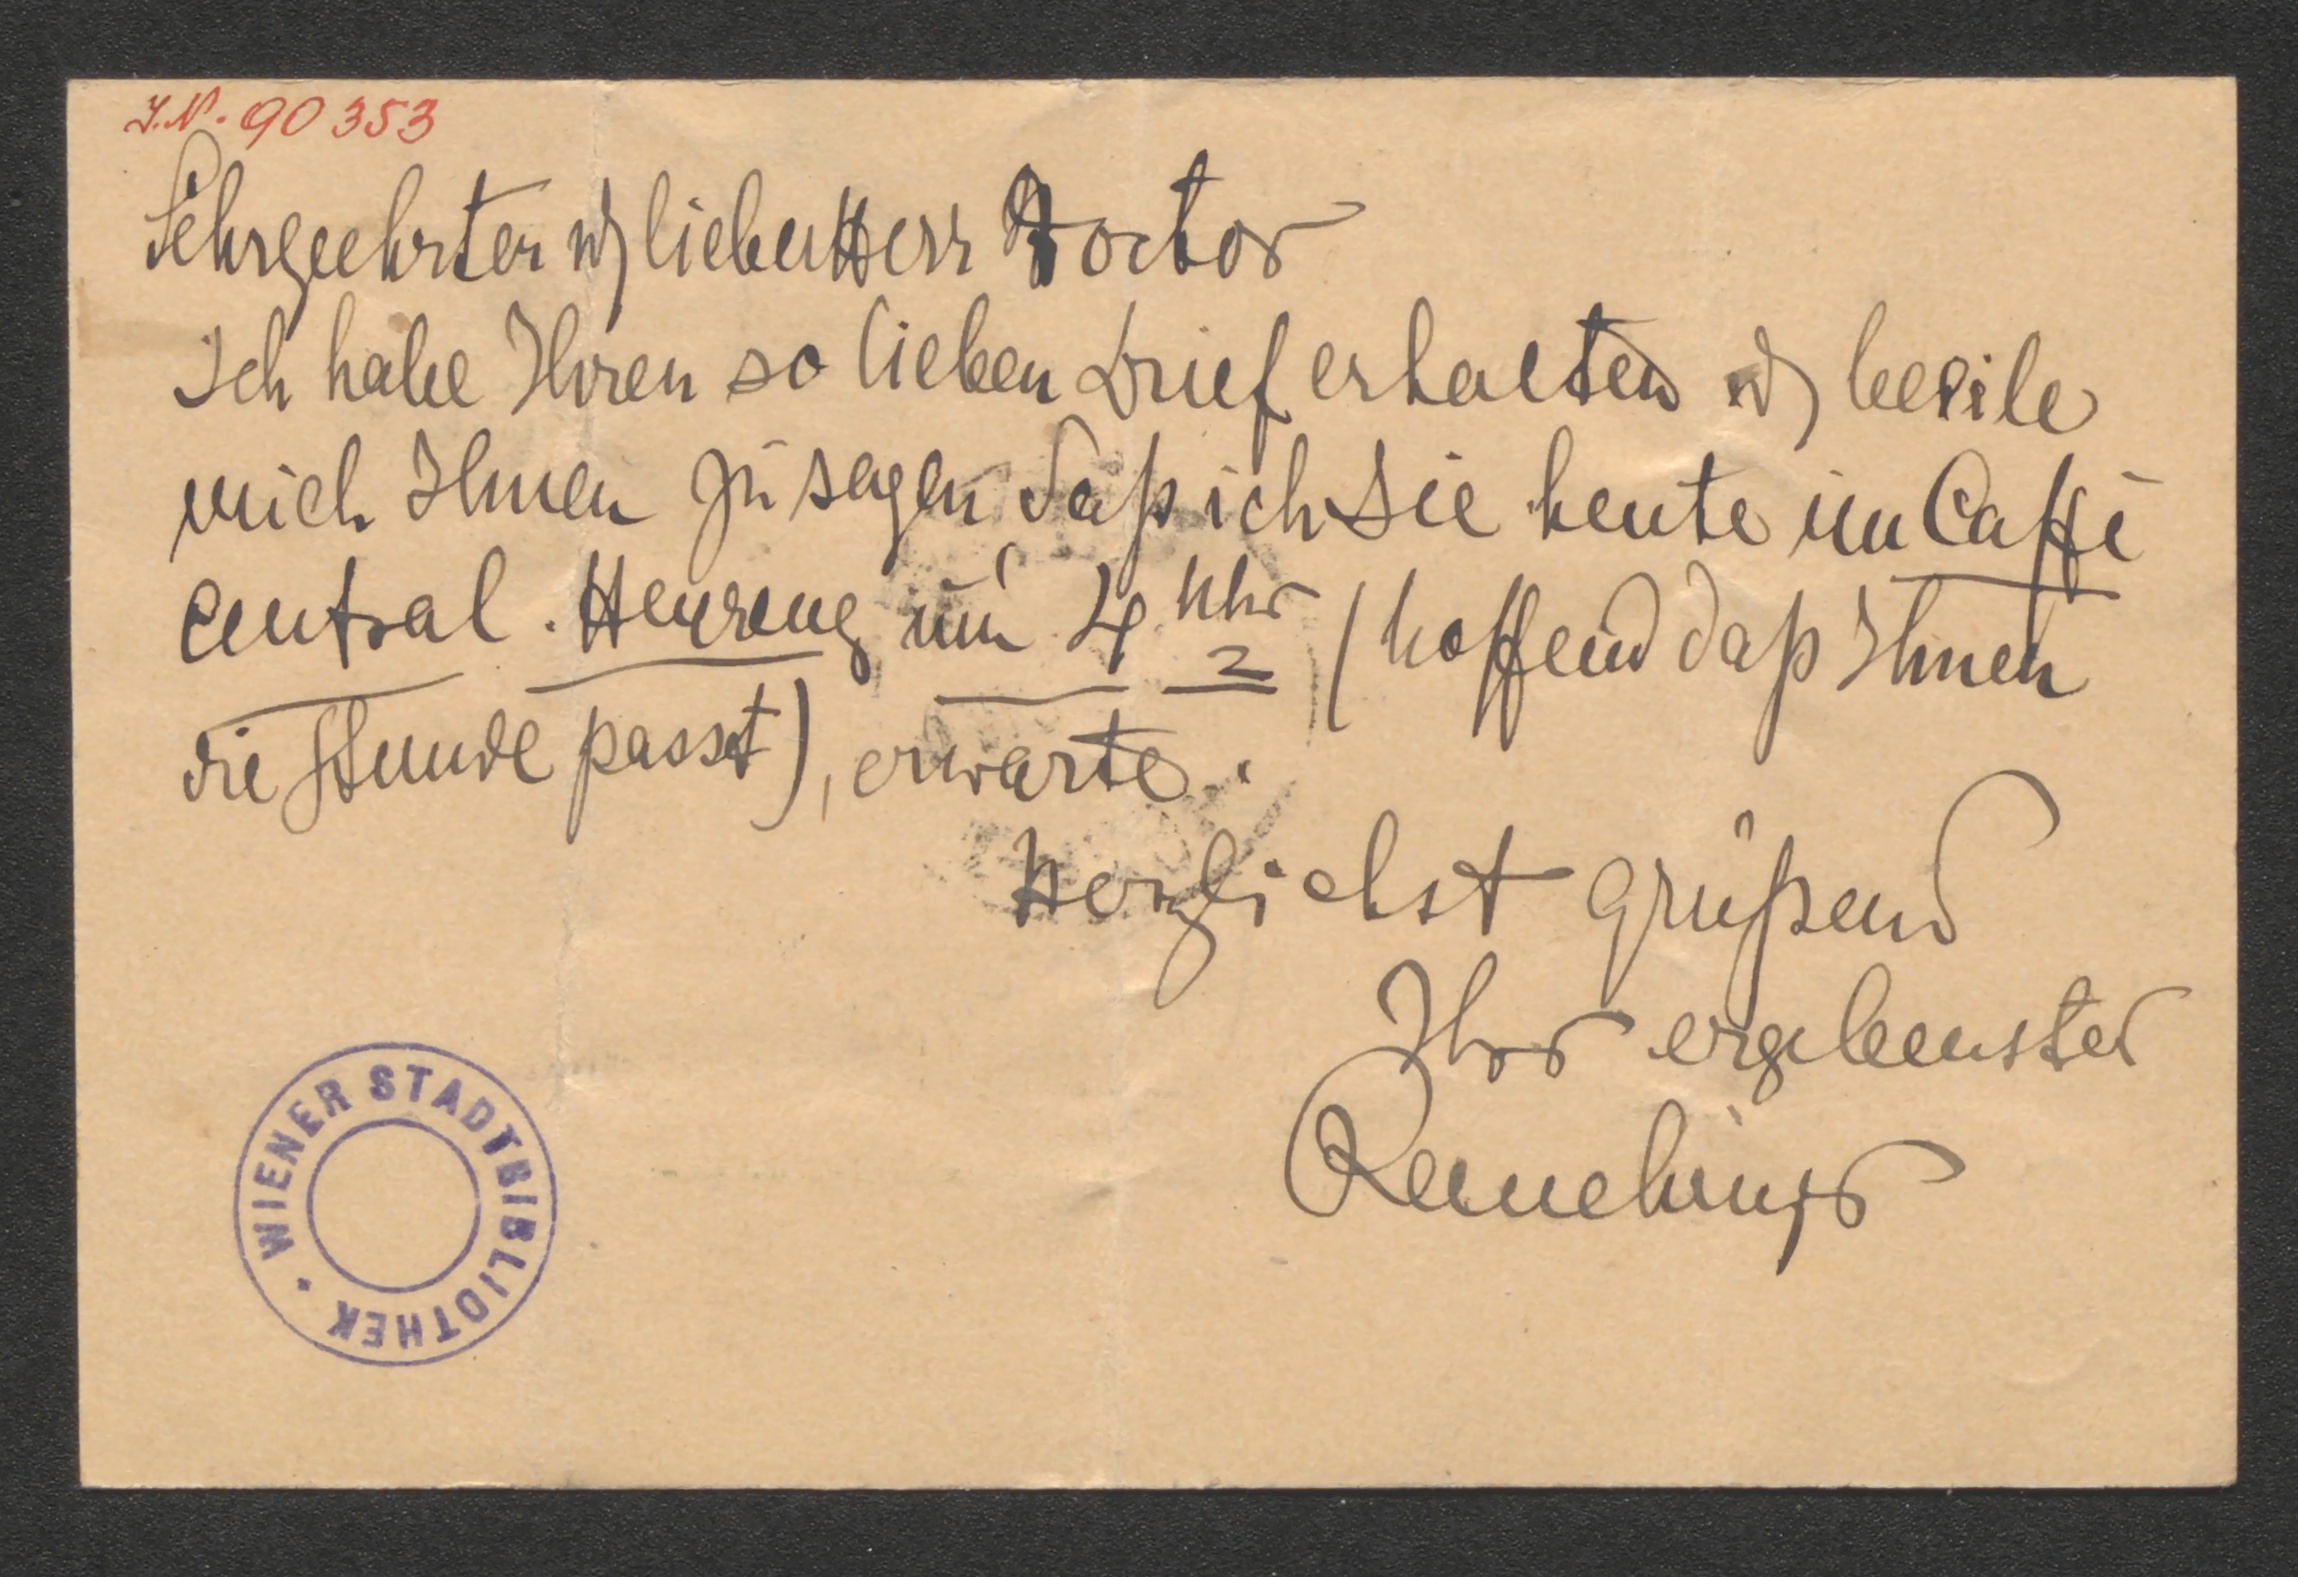 J.N. 90353
Sehrgeehrter u lieber Herr Doctor
Ich habe Ihren so lieben Brief erhalten u beeile
mich Ihnen zu sagen daß ich Sie heute im Caffé
Central. Herreng um 4 Uhr (hoffend daß Ihnen
die Stunde passt), erwarte.
Herzlichst grüßend
Ihr ergebenster
WIENER STADTBIBLIOTHEK